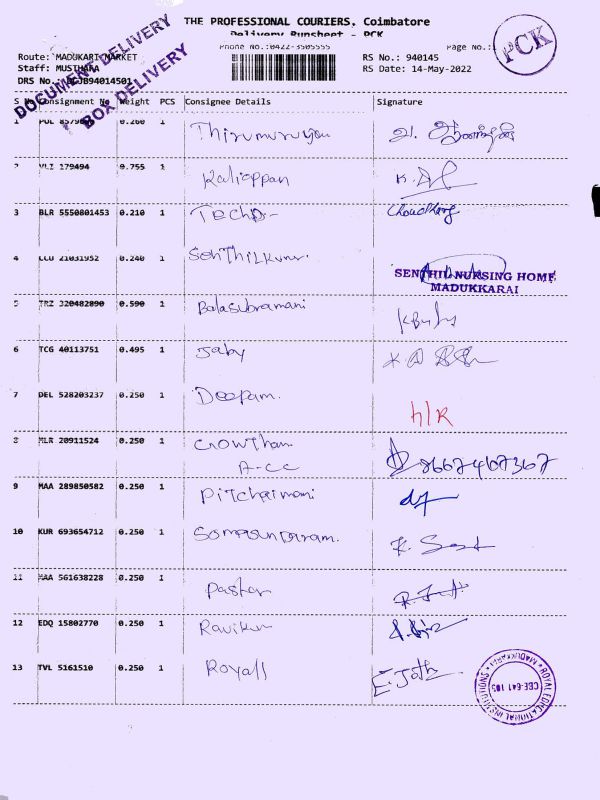 THE PROFESSIONAL COURIERS, Coimbatore
Delivery Runsheet - PCK
Phone No.:0422-3505555 Page No.:1
PCK
Route: MADUKARI MARKET RS No.: 940145
Staff: MUSTHAFA RS Date: 14-May-2022
DRS No.:
DOCUMENT DELIVERY
BOX DELIVERY
S No Consignment No Weight PCS Consignee Details Signature
1 POL 0.260 1
2 VLZ 179494 0.755 1 Kaliappan
3 BLR 5550801453 0.210 1 Tech Choudhary
4 21031952 0.240 1 Senthilkumar.
SENTHIL NURSING HOME
MADUKKARAI
5 TRZ 320482890 0.590 1 Balasubramani
6 TCG 40113751 0.495 1 Jaby
7 DEL 528203237 0.250 1 Deepam. h/R
8 MLR 20911524 0.250 1 Gowtham
A-CC
9 MAA 289850582 0.250 1 Pitchaimani
10 KUR 693654712 0.250 1 Somasundaram.
11 MAA 561638228 0.250 1 Pastor
12 EDQ 15802770 0.250 1 Ravikum
13 TVL 5161510 0.250 1 Royall
ROYAL EDUCATIONAL INSTITUTIONS * MADUKKARAI *
CBE-641 105